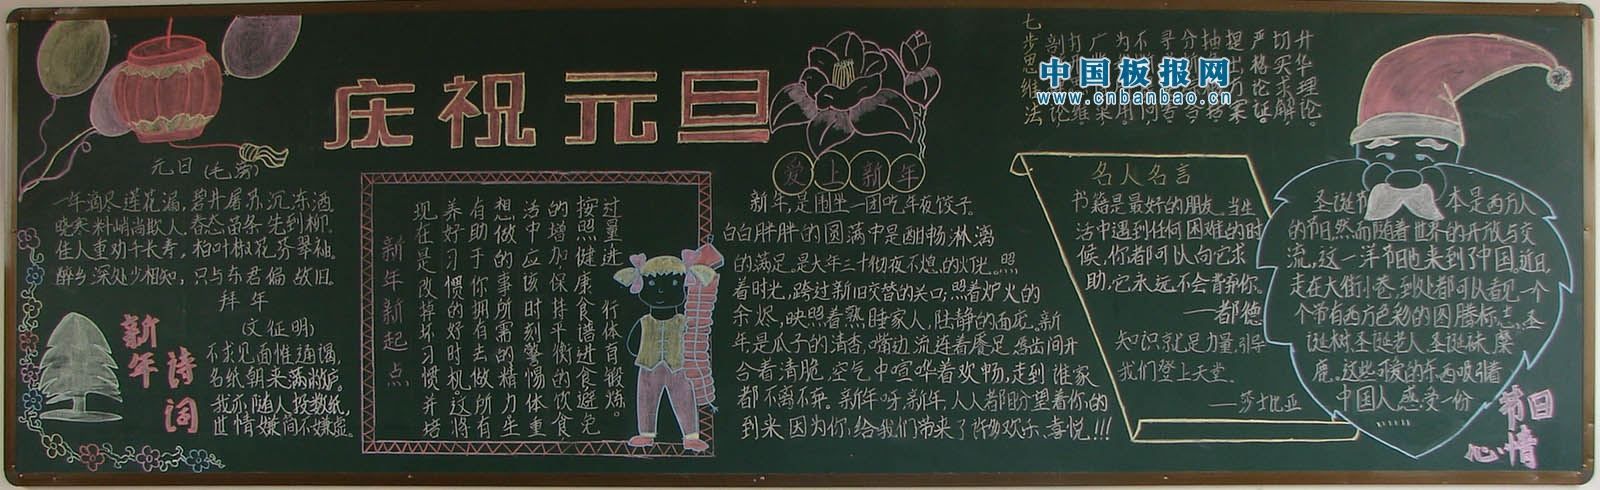 庆祝元旦
元日(毛滂)
一年滴尽莲花漏,碧井屠苏沉冻酒
晓寒料峭尚欺人,春态苗条先到柳。
佳人重劝千长寿,柏叶椒花芬翠袖。
醉乡深处少相知,只与东君偏故旧。
拜年
(文征明)
不求见面惟通谒,
名纸朝来满敝庐。
我亦随人投数纸,
世情嫌简不嫌虚。
新年
诗词
新年新起点
过量进 行体自锻炼。
按照健康食谱进食避免
的增加保持平衡的饮食
活中应该时刻警惕体重
想做的事所需的精力生
有助于你拥有去做所有
养好习惯的好时机。这将
现在是改掉坏习惯并培
爱上新年
新年,是围坐一团吃年夜饺子。
白白胖胖的圆满中是酣畅淋漓
的满足。是大年三十彻夜不熄,的灯光。照
着时光,跨过新旧交替的关口;照着炉火的
余烬,映照着熟睡家人,恬静的面庞。新
年是瓜子的清香,嘴边流连着餍足,唇齿间开
合着清脆,空气中喧哗着欢畅,走到谁家
都不离不弃。新年呀,新年,人人都盼望着你的
到来因为你,给我们带来了 欢乐、喜悦!!!
七步思维法
中国板报网
www.cnbanbao.cn
名人名言
书籍是最好的朋友,当生
活中遇到任何困难的时
候,你都可以向它求
助,它永远不会背弃你。
——都德
知识就是力量,引导
我们登上天堂。
——莎士比亚
圣诞节 本是西方人
的节日,然而随着世界的开放与交
流,这一洋节日也来到了中国,近日,
走在大街小巷,到处都可以看见一个
个带有西方色彩的图腾标志。圣
诞树、圣诞老人、圣诞袜、麋
鹿。这些可爱的东西吸引着
中国人感受一份
节日
心情